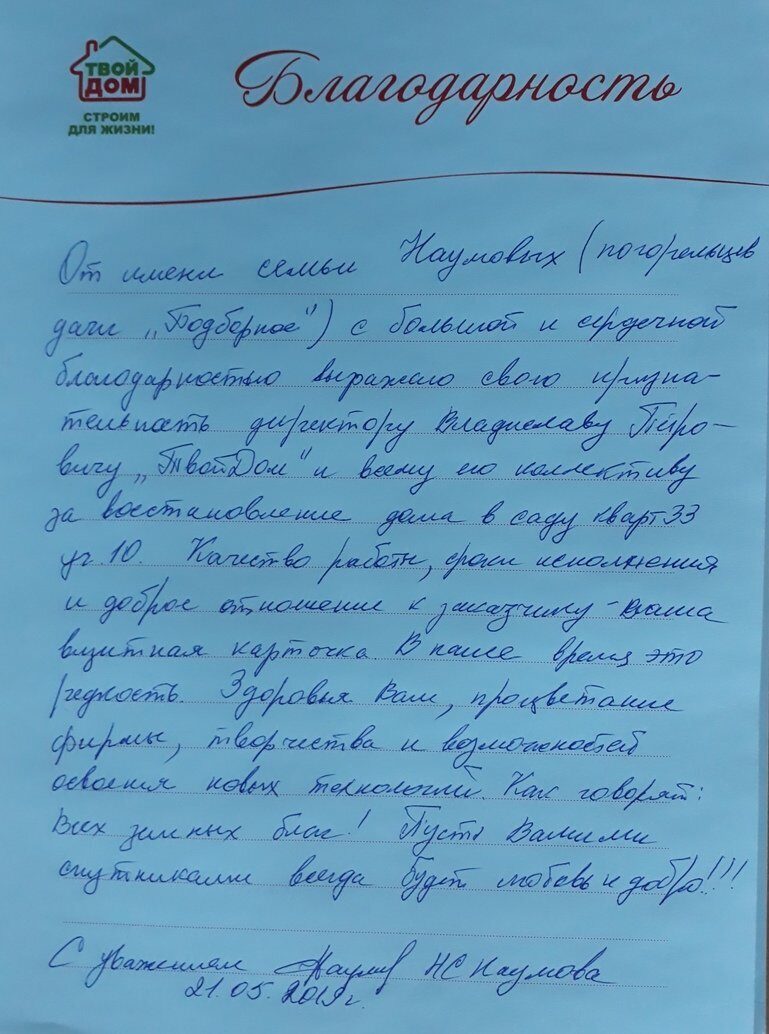 ТВОЙ
ДОМ
СТРОИМ
ДЛЯ ЖИЗНИ!
Благодарность
От имени семьи Наумовых (погорельцев
дачи „Подборное") с большой и сердечной
благодарностью выражаю свою призна-
тельность директору Владиславу Петро-
вичу „ТвойДом" и всему его коллективу
за восстановление дома в саду кварт 33
уч. 10. Качество работы, сроки исполнения
и доброе отношение к заказчику - ваша
визитная карточка В наше время это
редкость. Здоровья Вам, процветание
фирмы, творчества и возможностей
освоения новых технологий. Как говорят:
Всех земных благ! Пусть Вашими
спутниками всегда будет любовь и добро!!!
С уважением НС Наумова
21.05.2019г.